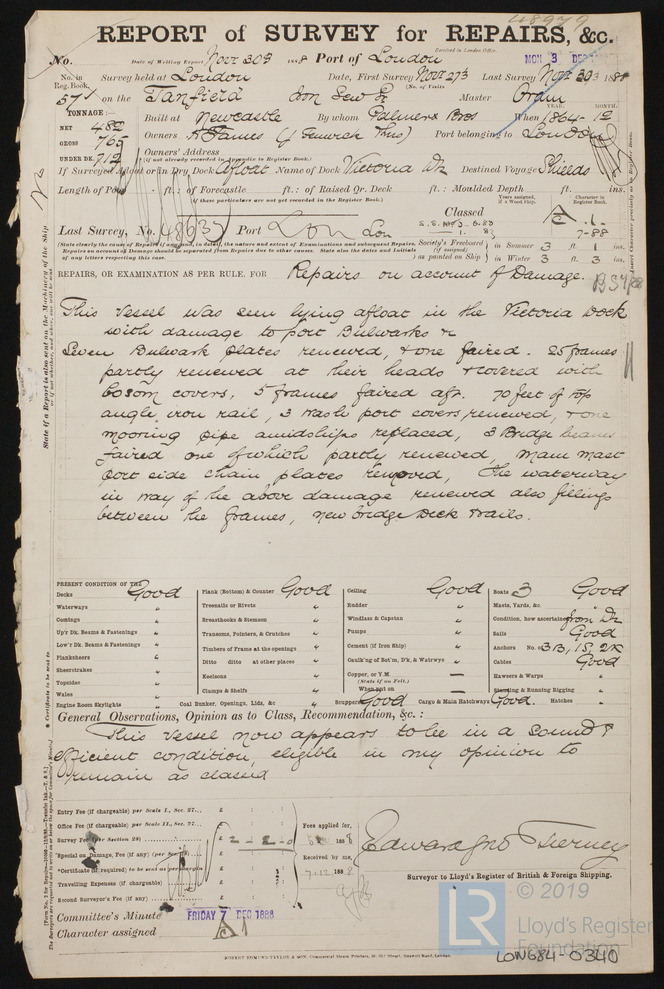 REPORT of SURVEY for REPAIRS, &c.
48979
No.
Date of Writing Report Novr 30th 1888 Port of London
Received in London Office.
MON 3 DEC
No. in Reg. Book.
Survey held at London Date, First Survey Novr 27th Last Survey Novr 30th 1888
(No. of Visits
571 on the Tanfield Iron Sew Sr Master
TONNAGE:—
YEAR. MONTH.
NET 482 Built at Newcastle By whom Palmers Bros When 1864-12
GROSS 765 Owners Port belonging to London
UNDER DK. 712 Owners' Address
(if not already recorded in Appendix to Register Book.)
If Surveyed Afloat or in Dry Dock Afloat Name of Dock Victoria Dk Destined Voyage Shields
Length of Poop ft. : of Forecastle ft. : of Raised Qr. Deck ft. : Moulded Depth ft. ins.
(if these particulars are not yet recorded in the Register Book.)
Classed
Last Survey, No. 48637 Port Lon Lon
Society's Freeboard (if assigned) as painted on Ship in Summer 3 ft 1 ins.
in Winter 3 ft. 3 ins.
7-88
REPAIRS, OR EXAMINATION AS PER RULE. FOR Repairs on account of Damage.
This vessel was seen lying afloat in the Victoria Dock
with damage to port Bulwarks &c
Seven Bulwark plates renewed, & one faired. 25 frames
partly renewed at their heads & covered with
bosom covers, 5 frames faired aft. 70 feet of top
angle iron rail, 3 wash port covers renewed, & one
mooring pipe amidships replaced, 3 Bridge beams
faired one of which partly renewed, main mast
port side chain plates renewed, the waterway
in way of the above damage renewed also fillings
between the frames, new bridge Deck & rails.
State if a Report is also sent on the Machinery of the Ship
PRESENT CONDITION OF THE
Decks Good
Waterways "
Comings "
Up'r Dk. Beams & Fastenings "
Low'r Dk. Beams & Fastenings "
Planksheers "
Sheerstrakes "
Topsides "
Wales "
Engine Room Skylights "
Plank (Bottom) & Counter Good
Treenails or Rivets "
Breasthooks & Stemson "
Transoms, Pointers, & Crutches "
Timbers of Frame at the openings "
Ditto ditto at other places "
Keelsons "
Clamps & Shelfs "
Coal Bunker, Openings, Lids, &c "
Ceiling Good
Rudder "
Windlass & Capstan "
Pumps "
Cement (if Iron Ship) "
Caulk'ng of Bot'm, D'k, & Watrwys "
Copper, or Y.M. —
(State if on Felt.)
When put on —
Scuppers Good Cargo & Main Hatchways Good.
Boats 3 Good
Masts, Yards, &c. "
Condition, how ascertained from Dk
Sails Good
Anchors No. 3B, 1S, 2K
Cables Good
Hawsers & Warps "
Standing & Running Rigging "
Hatches "
General Observations, Opinion as to Class, Recommendation, &c. :
This vessel now appears to be in a sound &
efficient condition, eligible in my opinion to
remain as classed
Entry Fee (if chargeable) per Scale I., Sec. 27... £ : :
Office Fee (if chargeable) per Scale II., Sec. 27... £ : :
Survey Fee (per Section 28) £ 2 - 2 - 0
Special on Damage, Fee (if any) £ : :
Travelling Expenses (if chargeable)
Second Surveyor's Fee (if any) £ : :
Fees applied for,
188
Received by me,
7.12.1888
Edward Jno Tierney
Surveyor to Lloyd's Register of British & Foreign Shipping.
Committee's Minute FRIDAY 7 DEC 1888
Character assigned A 1
LR
© 2019
Lloyd's Register
Foundation
LON684-0340